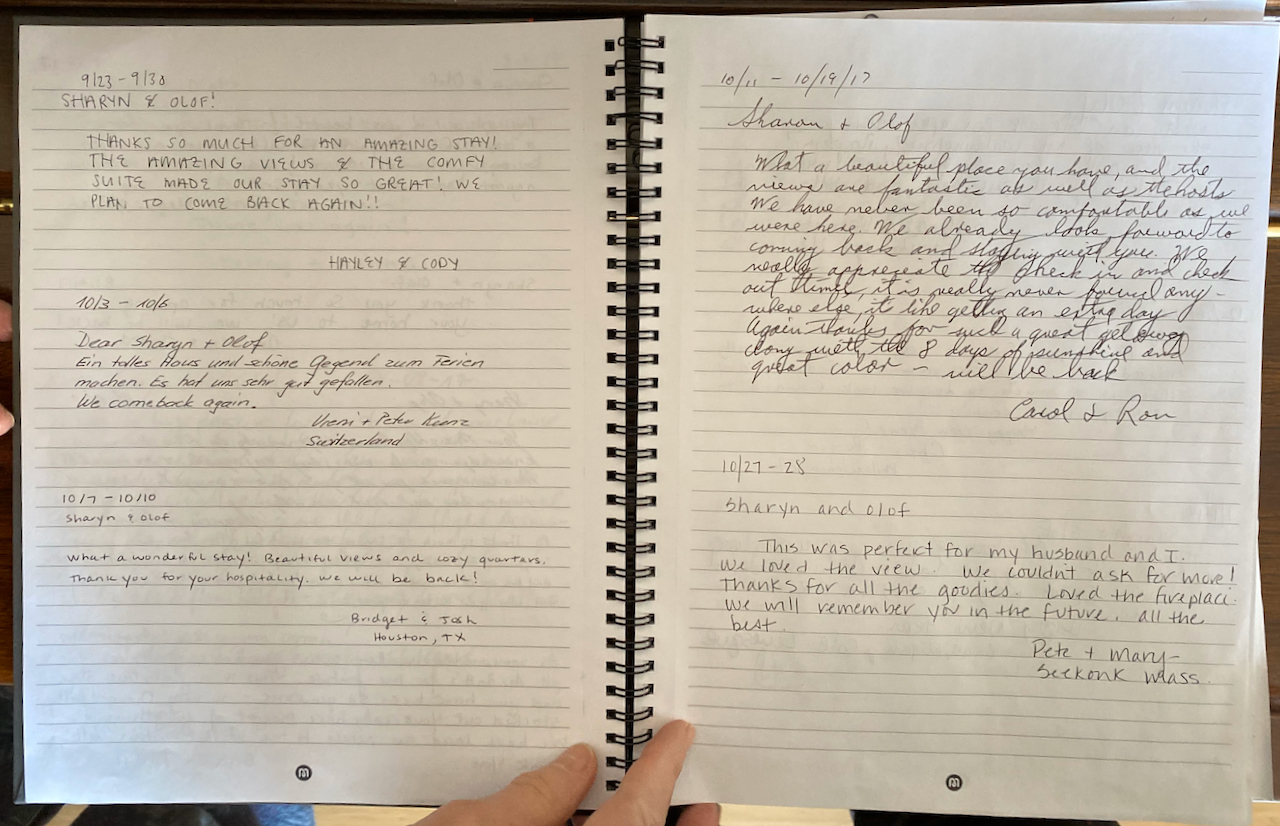 9/23 - 9/30
SHARYN & OLOF!
THANKS SO MUCH FOR AN AMAZING STAY!
THE AMAZING VIEWS & THE COMFY
SUITE MADE OUR STAY SO GREAT! WE
PLAN TO COME BACK AGAIN!!
HAYLEY & CODY
10/3 - 10/6
Dear Sharyn + Olof
Ein tolles Haus und schöne Gegend zum Ferien
machen. Es hat uns sehr gut gefallen.
We comeback again.
Vreni + Peter Kunz
Switzerland
10/7 - 10/10
Sharyn & Olof
What a wonderful stay! Beautiful views and cozy quarters.
Thank you for your hospitality. We will be back!
Bridget & Josh
Houston, TX
10/11 - 10/19/17
Sharon + Olof
What a beautiful place you have, and the
views are fantastic as well as the hosts
We have never been so comfortable as we
were here. We already look forward to
coming back and staying with you. We
really appreciate the check in and check
out times, it is really never found any-
where else, it like getting an extra day
Again thanks for such a great getaway
along with the 8 days of sunshine and
great color - will be back
Carol & Ron
10/27 - 28
Sharyn and Olof
This was perfect for my husband and I.
We loved the view. We couldn't ask for more!
Thanks for all the goodies. Loved the fireplace.
We will remember you in the future. all the
best.
Pete + Mary -
Seekonk Mass.